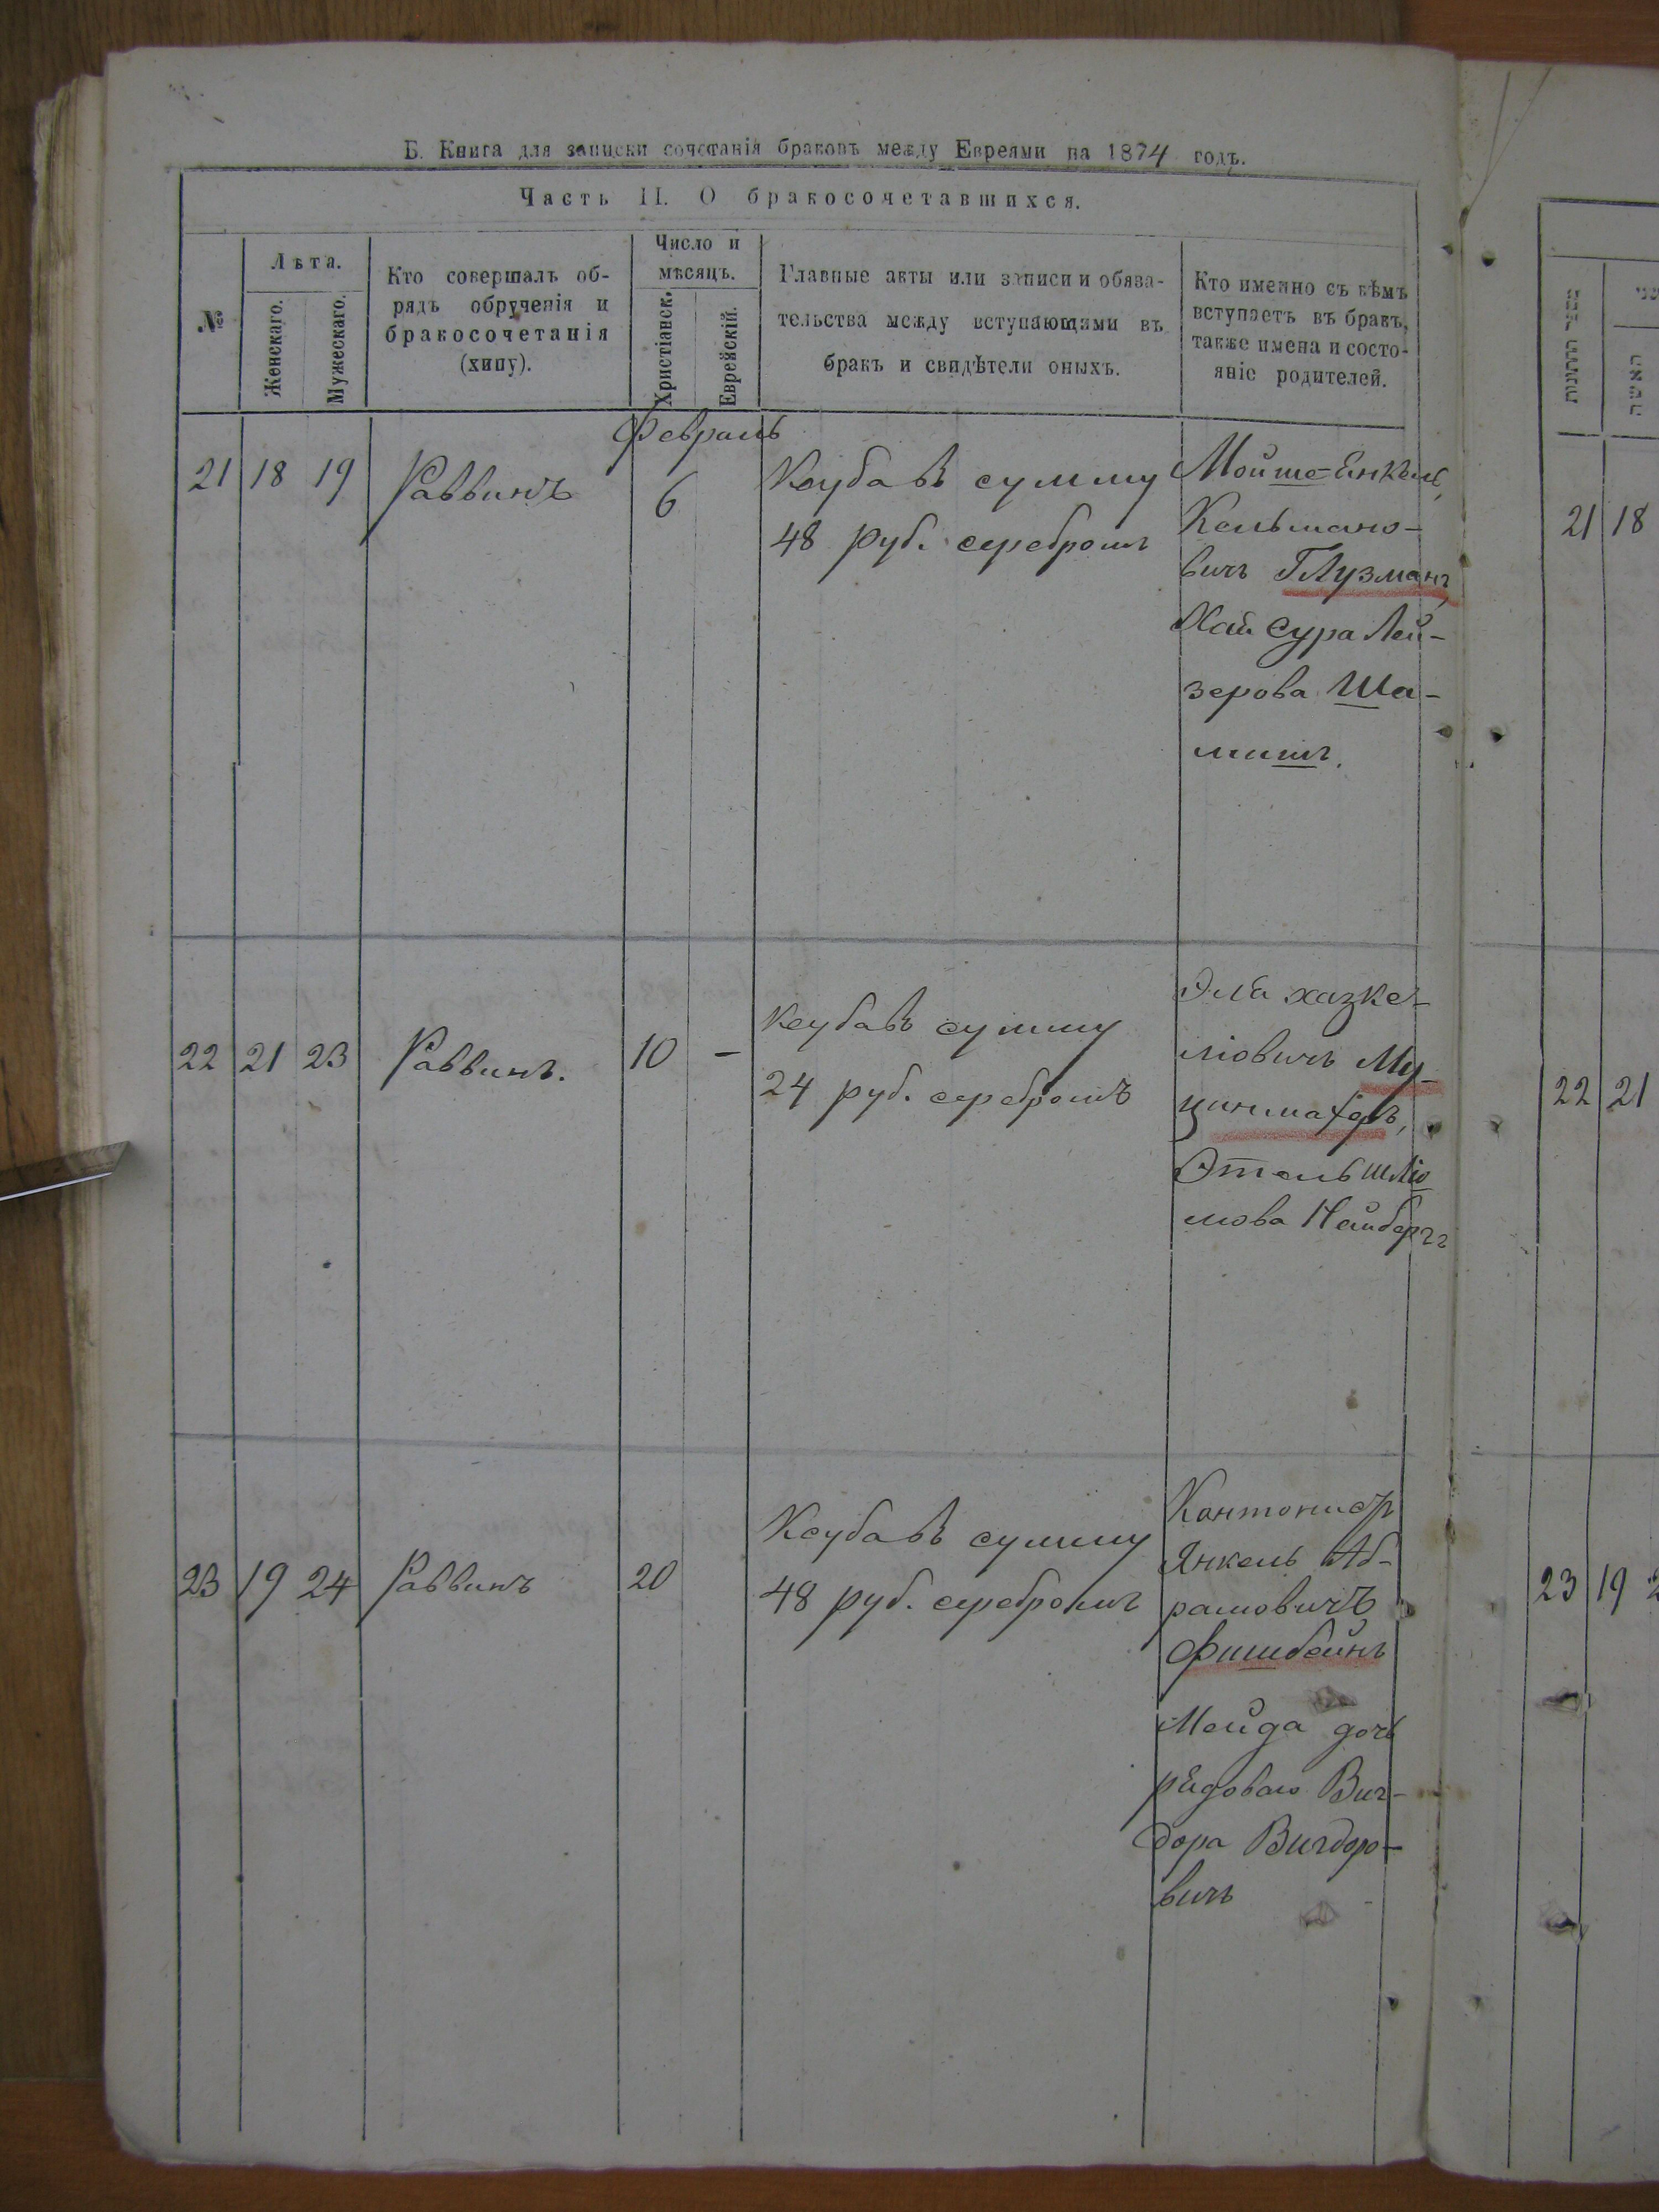 Б. Книга для записки сочетанія браковъ между Евреями на 1874 годъ.
Часть II. О бракосочетавшихся.
№
Лѣта.
Женскаго.
Мужескаго.
Кто совершалъ об-
рядъ обрученія и
бракосочетанія
(хипу).
Число и
мѣсяцъ.
Христіанск.
Еврейскій.
Главные акты или записи и обяза-
тельства между вступающими въ
бракъ и свидѣтели оныхъ.
Кто именно съ кѣмъ
вступаетъ въ бракъ,
также имена и состо-
яніе родителей.
Февраль
21 18 19 Раввинъ 6
Ксуба въ сумму
48 руб. серебромъ
Мойше-Енкель
Кельмано-
вичъ Глузманъ,
Хая Сура Лей-
зерова Ша-
мишъ.
22 21 23 Раввинъ. 10 –
Ксуба въ сумму
24 руб. серебромъ
Эля хазке-
ліовичъ Му-
цинмахеръ,
Этель Шліо
мова Наибергъ
23 19 24 Раввинъ 20
Ксуба въ сумму
48 руб. серебромъ
Кантонистъ
Янкель Аб-
рамовичъ
Фишбейнъ
Мейда дочь
рядоваго Виг-
дора Вигдоро-
вичъ
האשה
21 18
22 21
23 19 2